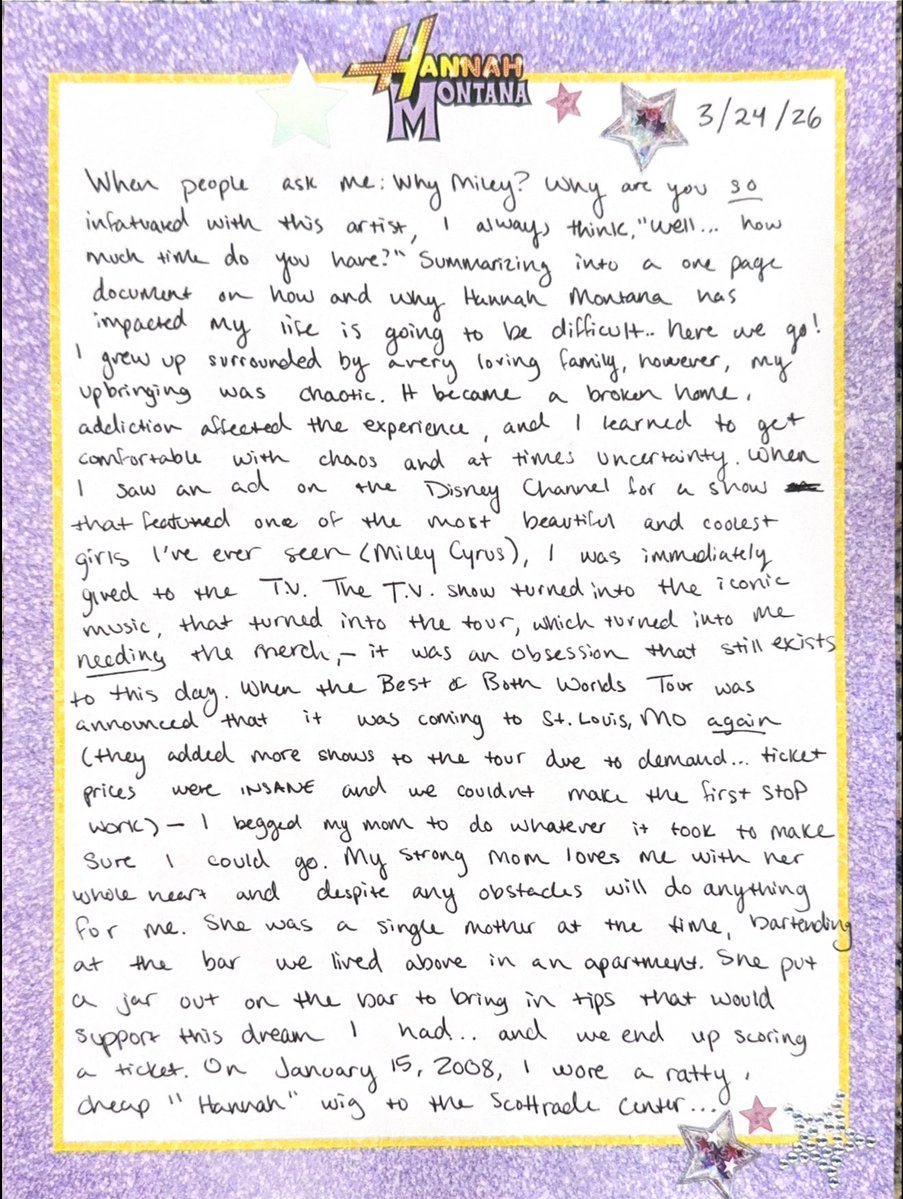 HANNAH
MONTANA
3/24/26
When people ask me: Why Miley? Why are you so
infatuated with this artist, I always think, "Well... how
much time do you have?" Summarizing into a one page
document on how and why Hannah Montana has
impacted my life is going to be difficult.. here we go!
I grew up surrounded by a very loving family, however, my
upbringing was chaotic. It became a broken home,
addiction affected the experience, and I learned to get
comfortable with chaos and at times uncertainty. When
I saw an ad on the Disney Channel for a show
that featured one of the most beautiful and coolest
girls I've ever seen (Miley Cyrus), I was immediately
glued to the T.V. The T.V. show turned into the iconic
music, that turned into the tour, which turned into me
needing the merch, - it was an obsession that still exists
to this day. When the Best of Both Worlds Tour was
announced that it was coming to St. Louis, MO again
(they added more shows to the tour due to demand... ticket
prices were INSANE and we couldnt make the first stop
work) - I begged my mom to do whatever it took to make
sure I could go. My strong mom loves me with her
whole heart and despite any obstacles will do anything
for me. She was a single mother at the time, bartending
at the bar we lived above in an apartment. She put
a jar out on the bar to bring in tips that would
support this dream I had.. and we end up scoring
a ticket. On January 15, 2008, I wore a ratty,
cheap "Hannah" wig to the Scottrade Center...